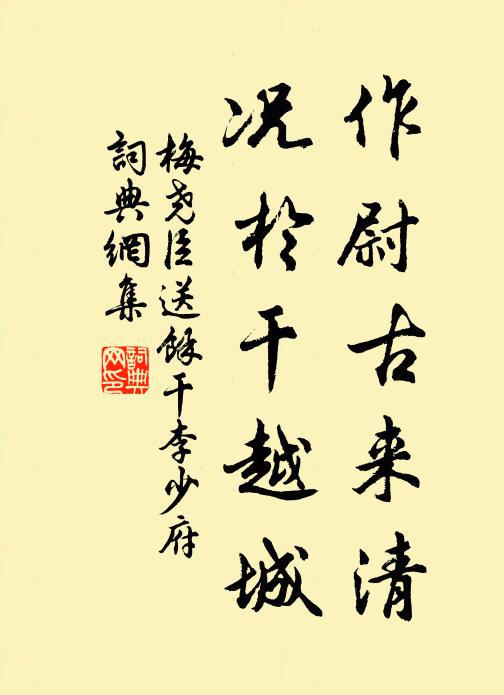 作尉古来清
况於干越城
梅尧臣送餘干李少府
詞典網集
詞典网印